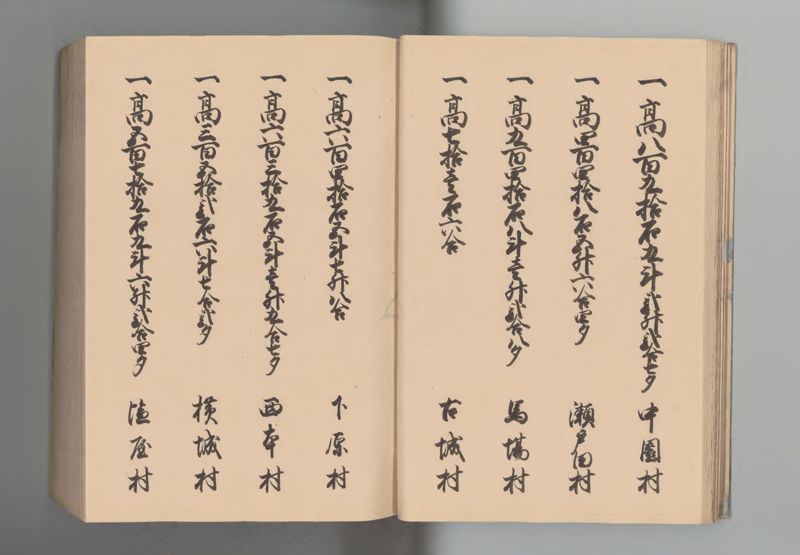 一高八百九拾石九斗弐升弐合七夕 中園村
一高四百四拾八石五升六合四夕 瀬戸田村
一高九百四拾石八斗壱升弐合八夕 馬場村
一高七拾壱石六合 古城村
一高六百四拾石五斗七升八合 下原村
一高六百三拾九石五斗壱升九合七夕 西本村
一高三百五拾弐石六斗七合弐夕 横城村
一高五百七拾九石九斗六升弐合四夕 塩屋村